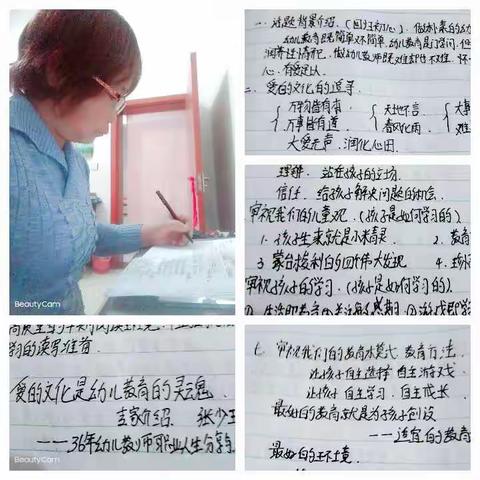 BeautyCam
一、话题背景介绍、(回归初心)、做朴素的幼
幼儿教育既简单又不简单,幼儿教育是门学问,但
润尊注情怀,做幼儿教师既难却也不难.怀
心,有爱足以
二、爱的文化的遵寻
万物皆有
天地不言、
万事皆有道、
春风化雨、
大爱无声、润化心田
理解、站在孩子的立场、
信任、给孩子解决问题的机会、
审视我们的儿童观、(孩子是如何学习的)
1、孩子生来就是小精灵、 2、教育
3、蒙台梭利的四个伟大发现 4、
审视孩子的学习、(孩子是如何学习的)、
习的读写准备
爱的文化是幼儿教育的灵魂、
专家介绍、张少
——36年幼儿教师职业人生分享
BeautyCam
七、审视我们的教育模式、教育方法、
让孩子自主选择、自主游戏、
让孩子自主学习、自主成长、
最好的教育就是为孩子创设
——适宜的教育
最好的环境、